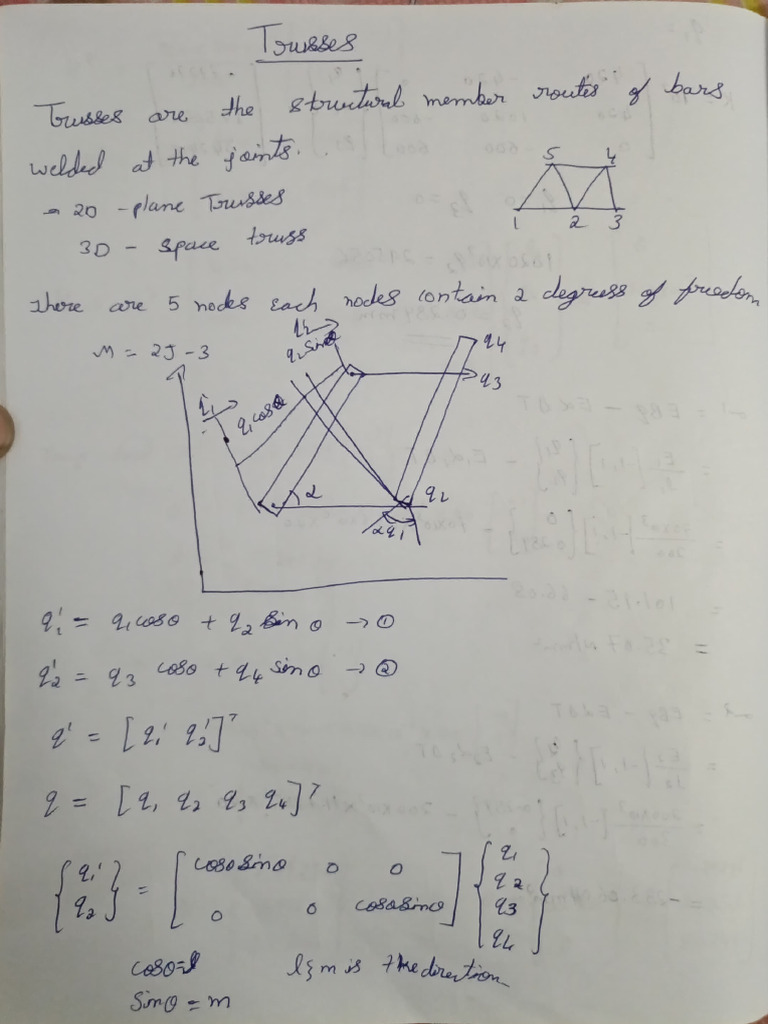 Trusses
Trusses are the structural member routes of bars
welded at the joints.
5 4
1 2 3
→ 2D - plane Trusses
3D - space truss
There are 5 nodes Each nodes contain 2 degress of freedom
M = 2J - 3
q2 sinθ
q4
q3
q1'
q1 cosθ
α
q2
q1' = q1 cosθ + q2 sinθ → ①
q2' = q3 cosθ + q4 sinθ → ②
q' = [q1' q2']T
q = [q1 q2 q3 q4]T
{q1' q2} = [cosθ sinθ 0 0
0 0 cosθ sinθ] {q1 q2 q3 q4}
cosθ=l l & m is the direction
sinθ = m